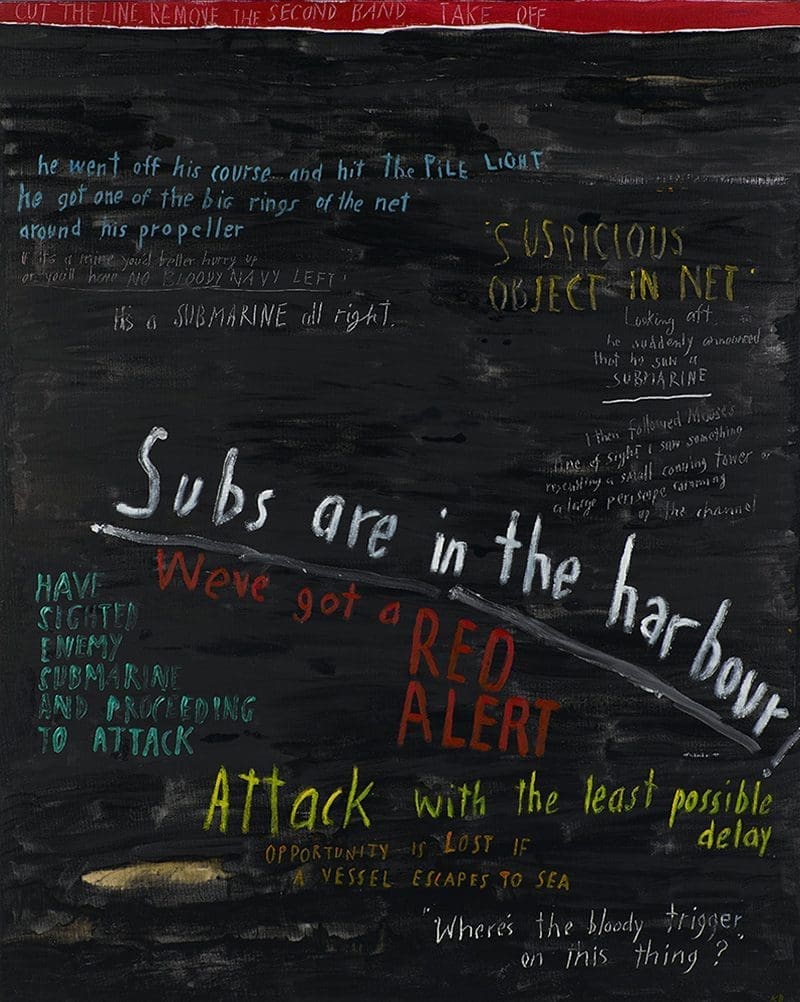 CUT THE LINE, REMOVE THE SECOND BAND TAKE OFF
he went off his course and hit the PILE LIGHT
he got one of the big rings of the net
around his propeller
If it's a mine you'd better hurry up
or you'll have NO BLOODY NAVY LEFT'
It's a SUBMARINE all right.
'SUSPICIOUS
OBJECT IN NET'
Looking aft
he suddenly announced
that he saw a
SUBMARINE
I then followed
line of sight I saw something
resembling a small conning tower or
a large periscope
up the channel
Subs are in the harbour!
We've got a
RED
ALERT
HAVE
SIGHTED
ENEMY
SUBMARINE
AND PROCEEDING
TO ATTACK
Attack with the least possible
delay
OPPORTUNITY IS LOST IF
A VESSEL ESCAPES TO SEA
"Where's the bloody trigger
on this thing?"